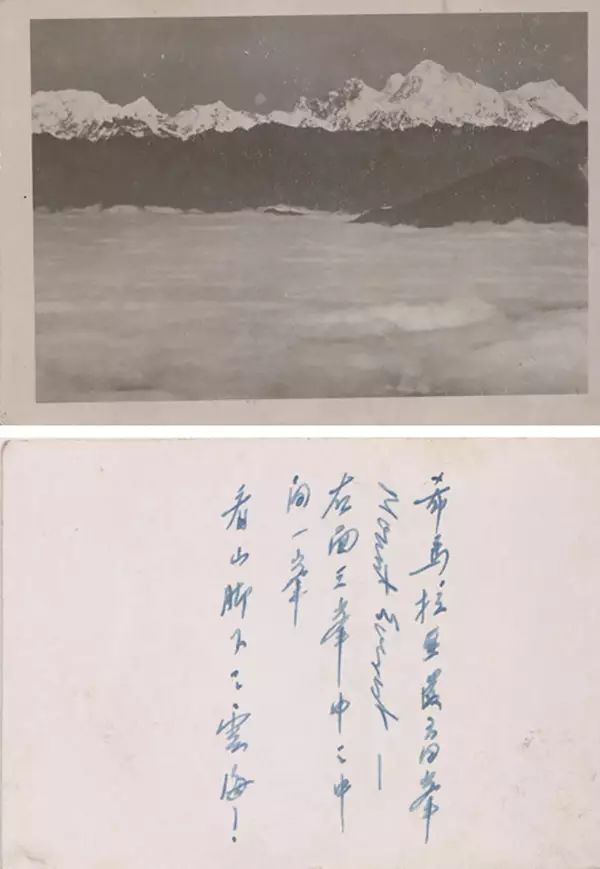 希馬拉亞最高峯
Mount Everest —
右面三峯中之中
间一峯
看山脚下之雲海！